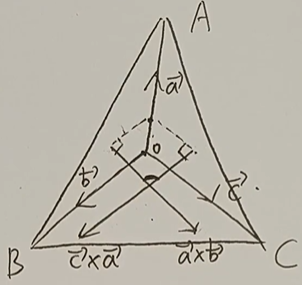 A
a⃗
O
b⃗
c⃗.
B
c⃗×a⃗
a⃗×b⃗
C